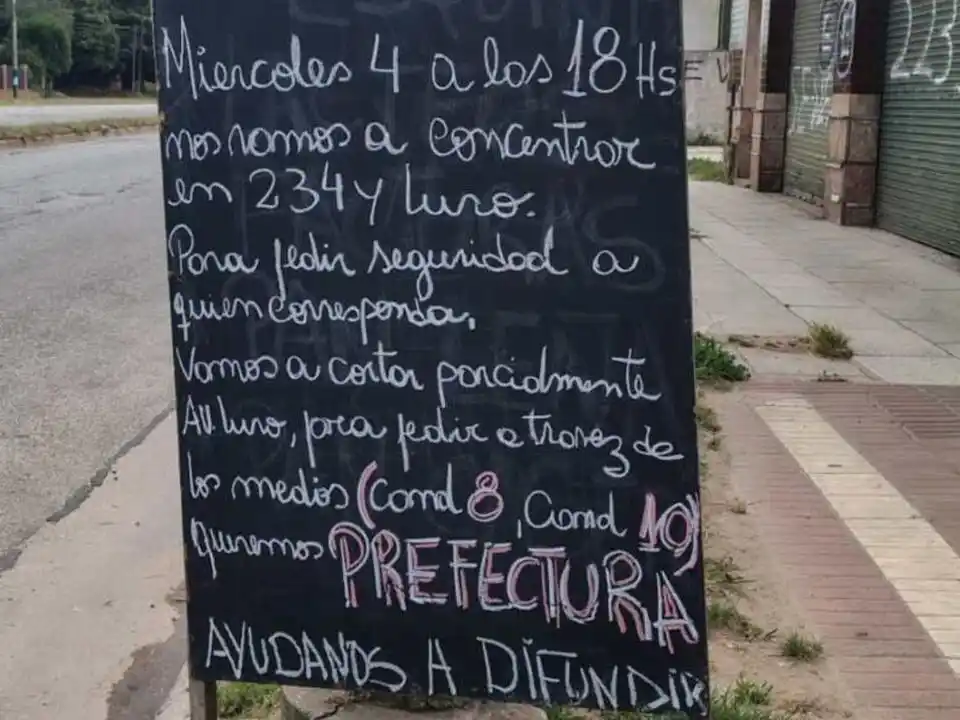 Miercoles 4 a las 18 Hs
nos vamos a concentrar
en 234 y luro.
Para pedir seguridad a
quien corresponda,
Vamos a cortar parcialmente
AV. luro, para pedir a travez de
los medios (Canal 8, Canal 10)
queremos PREFECTURA
AYUDANOS A DIFUNDIR